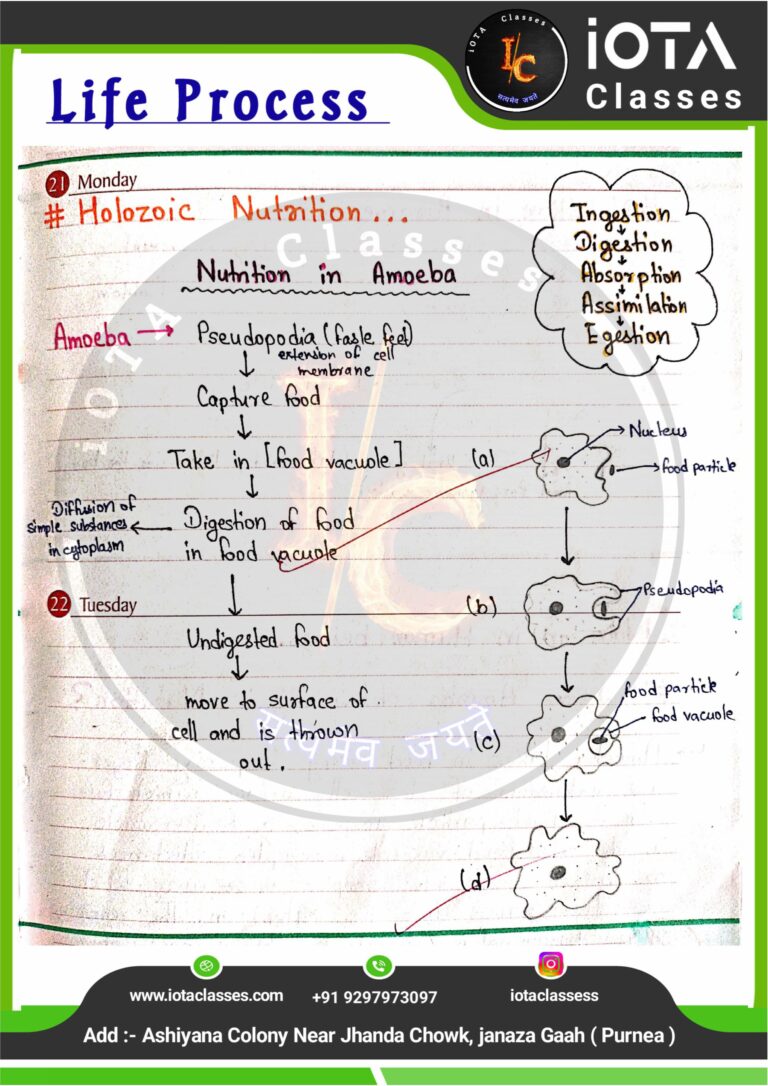 iOTA Classes
I/C
सत्यमेव जयते
iOTA
Classes
Life Process
21 Monday
# Holozoic Nutrition...
Ingestion
Digestion
Absorption
Assimilation
Egestion
Nutrition in Amoeba
Amoeba → Pseudopodia (fasle feet)
extension of cell
membrane
Capture food
Take in [food vacuole]
(a)
Nucleus
food particle
Diffusion of
simple substances
in cytoplasm
Digestion of food
in food vacuole
22 Tuesday
(b)
Pseudopodia
Undigested food
move to surface of
cell and is thrown
out.
(c)
food particle
food vacuole
(d)
iOTA Classes
I/C
सत्यमेव जयते
www.iotaclasses.com
+91 9297973097
iotaclassess
Add :- Ashiyana Colony Near Jhanda Chowk, janaza Gaah ( Purnea )